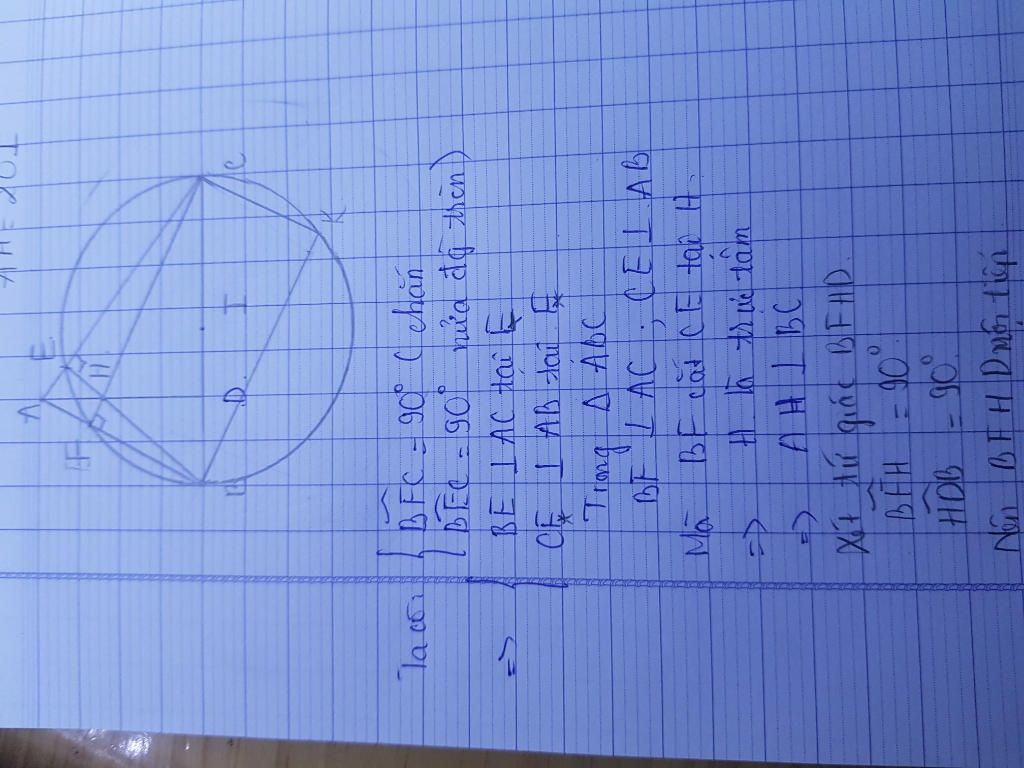 AH = 2OI
A
E
F
H
D
I
B
C
K
Ta có: { BFC = 90° ( chắn
{ BEC = 90° nửa đg tròn)
=> { BE ⊥ AC tại E
CF ⊥ AB tại F
Trong Δ ABC
BF ⊥ AC ; CE ⊥ AB
Mà BF cắt CE tại H.
=> H là trực tâm
=> AH ⊥ BC
Xét tứ giác BFHD.
BFH = 90°
HDB = 90°.
Nên BFHD nội tiếp